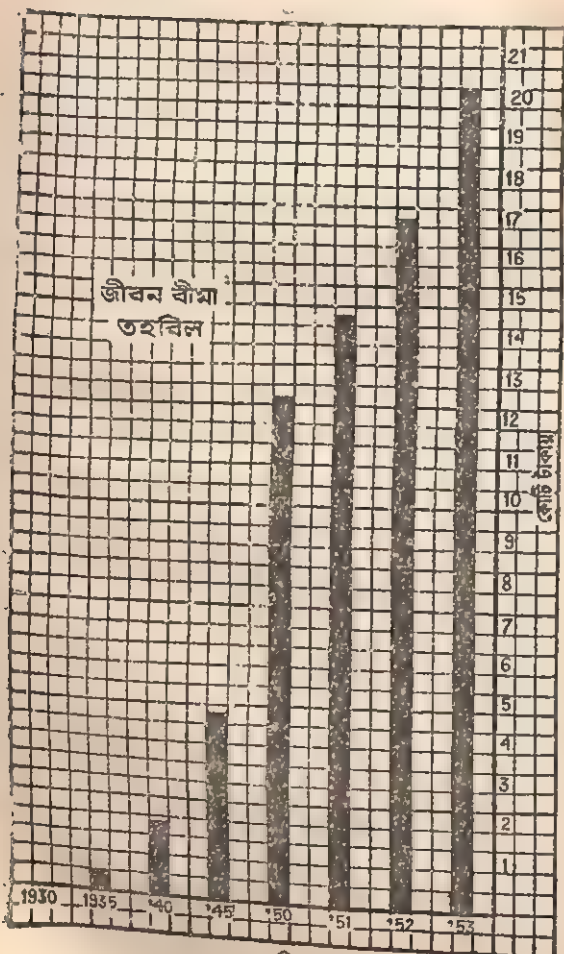 জীবন বীমা
তহবিল
21
20
19
18
17
16
15
14
13
12
11
10
9
8
7
6
5
4
3
2
1
কোটি টাকায়
1930 1935 '40 '45 '50 '51 '52 '53